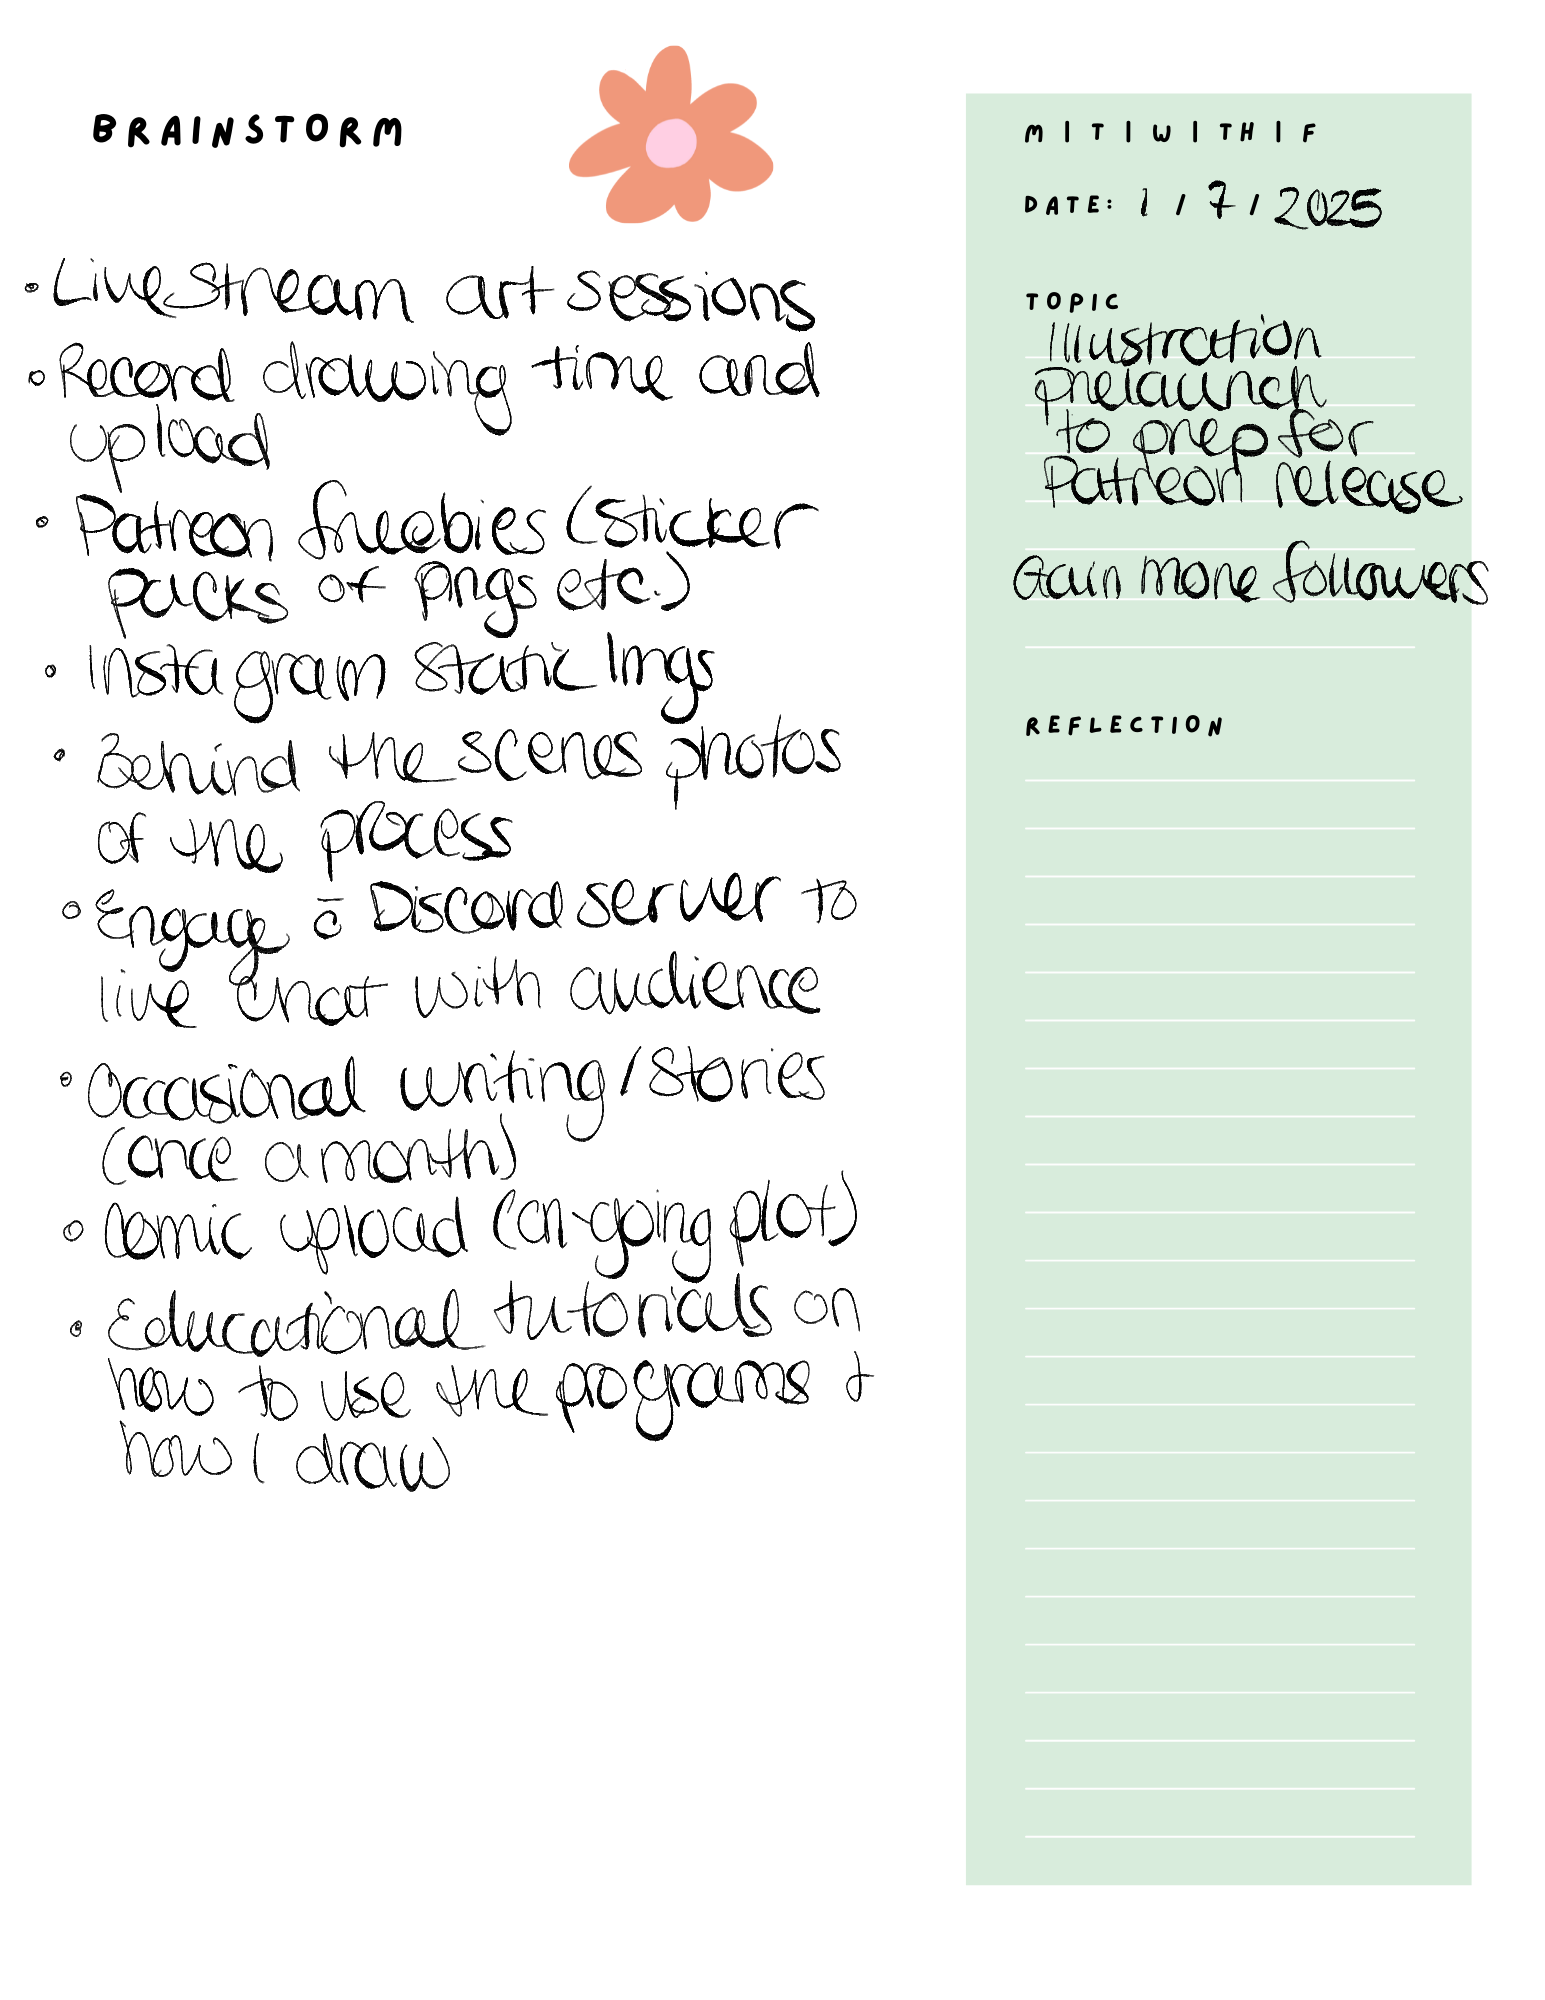 BRAINSTORM
• Livestream art sessions
• Record drawing time and
upload
• Patreon freebies (sticker
packs of pngs etc.)
• Instagram static Imgs
• Behind the scenes photos
of the process
• Engage c̄ Discord server to
live chat with audience
• Occasional writing/stories
(once a month)
• Comic upload (on-going plot)
• Educational tutorials on
how to use the programs +
how I draw
M | T | W | TH | F
DATE: 1 / 7 / 2025
TOPIC
Illustration
prelaunch
to prep for
Patreon release
Gain more followers
REFLECTION